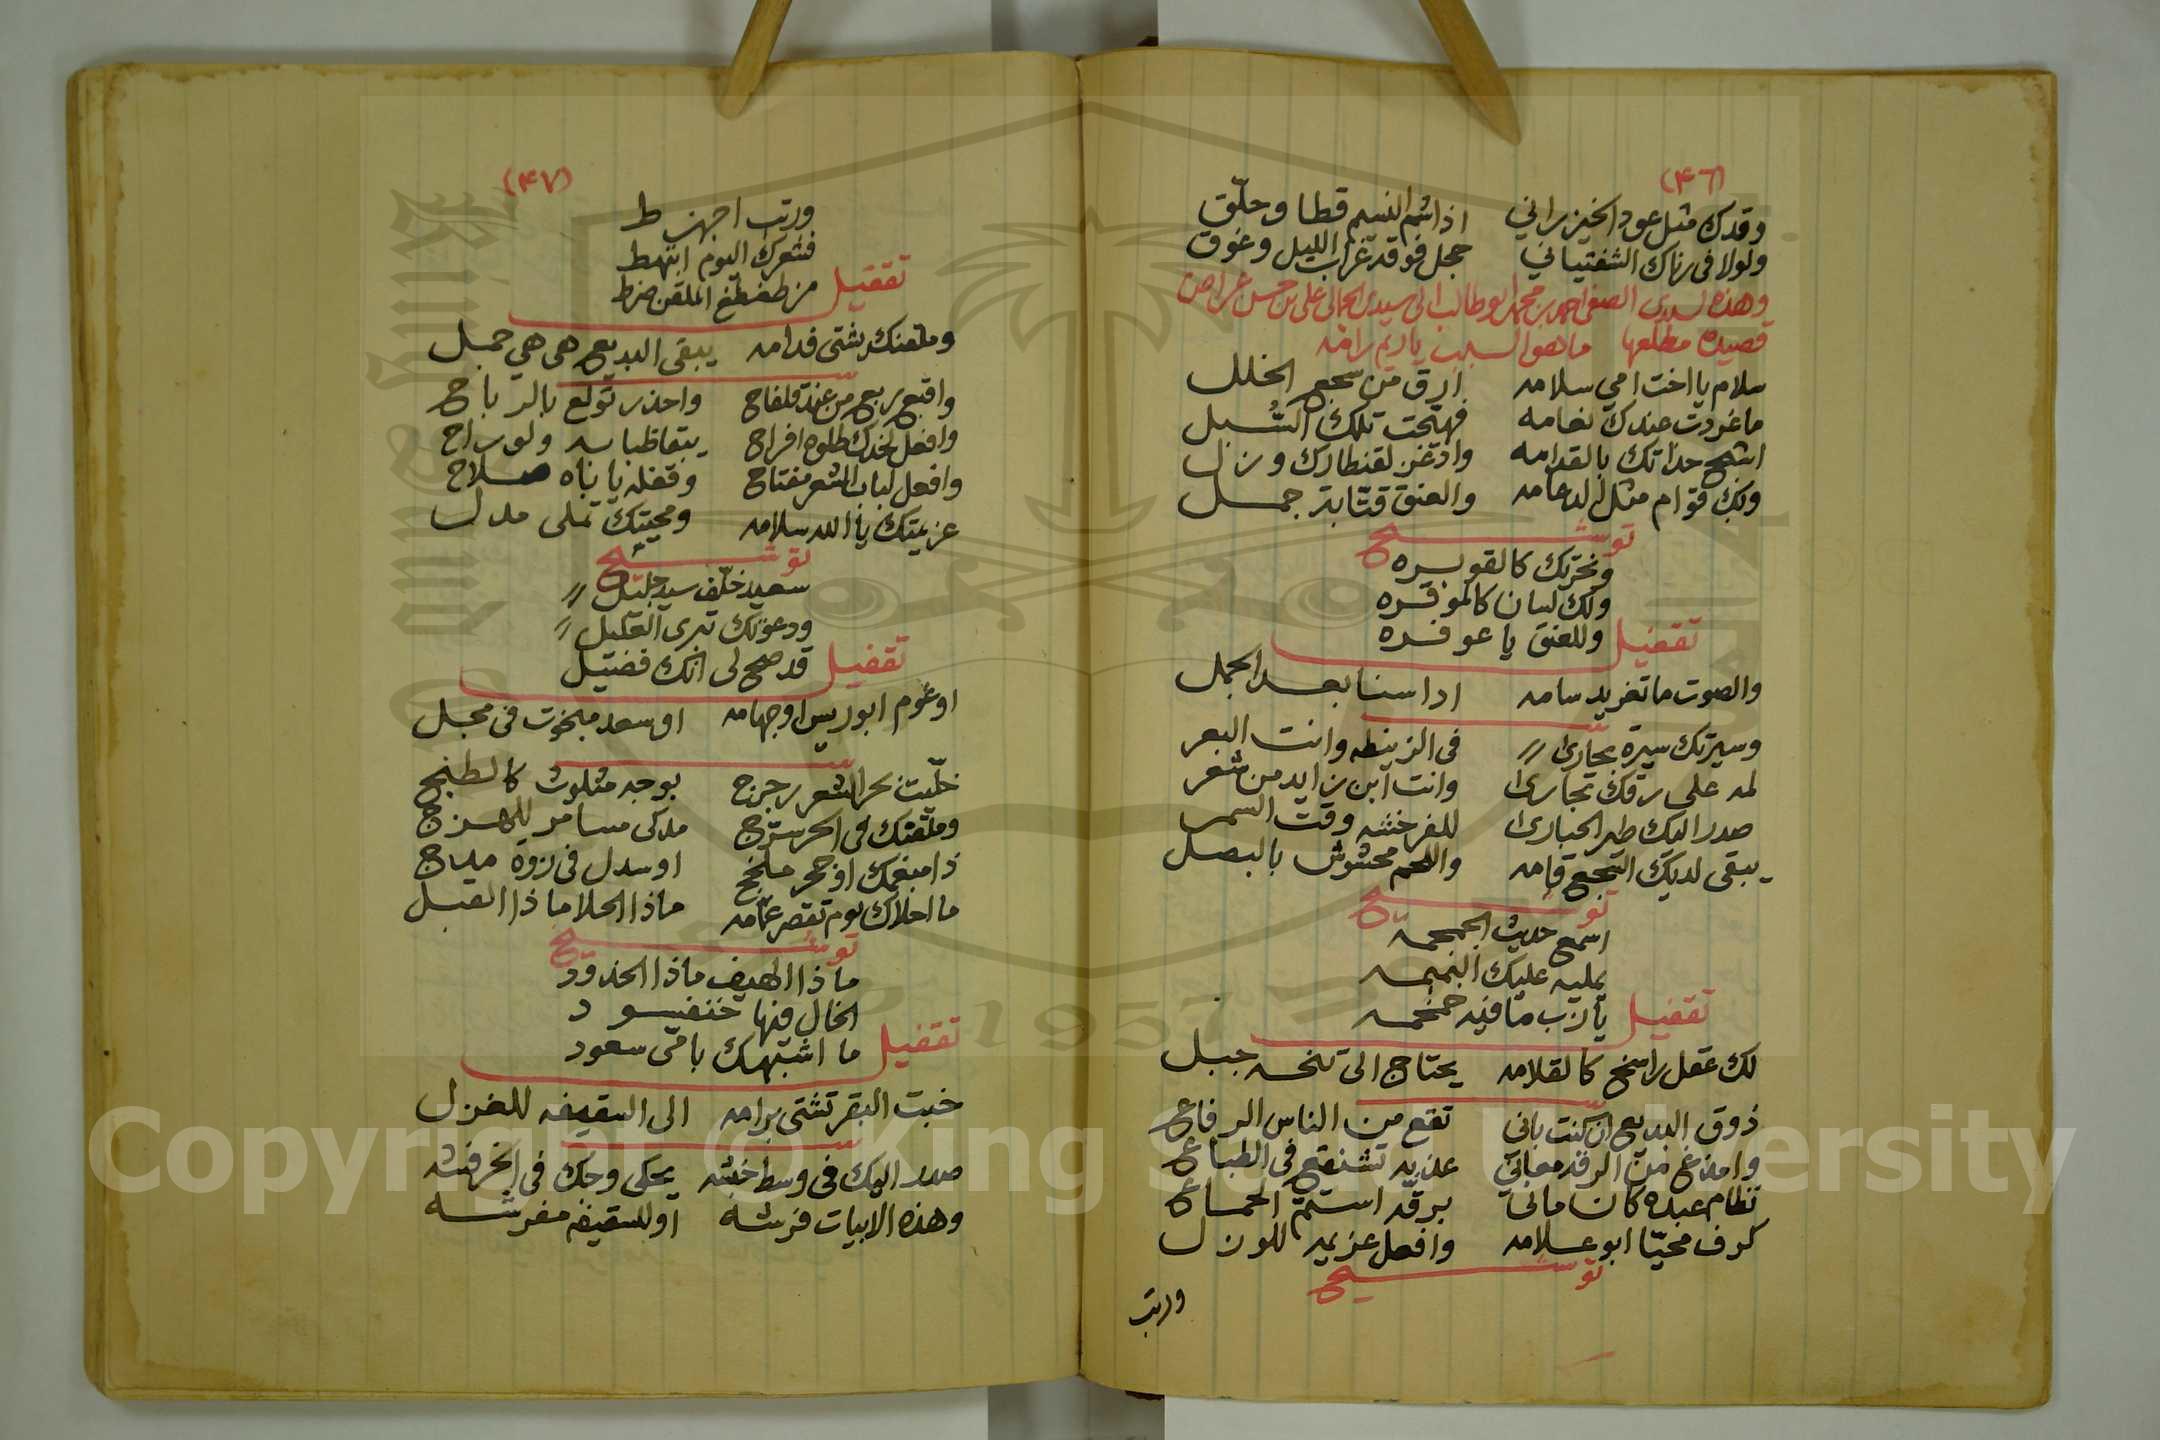 (٤٦)
وقدك مثل عود الخيزراني اذا شم النسيم قطا وحلّق
ولولا في رناك الشفتياني حجل فوقه غراب الليل وغوق
وهذه لسيدي الصفي احمد بن محمد ابو طالب الى سيدي الجمالي علي بن حسن
قصيده مطلعها ما لهو السبب يا ريم رامه
سلام يا اخت امي سلامه ارق من سجع الخلل
ما غردت عندك نعامه فهيّجت تلك السُّبل
اشبح حذاتك بالقدامه وادّهن لقنطارك ونزل
وبك قوام مثل الدعامه والعنق قتّابة جمل
توشيح
ونخرتك كالقوسره
ولك لسان كالموقره
وللعنق يا عوفره
تقفيل
والصوت ما تغريد سامه اذا سنا بعد الجمل
وسيرتك سيرة بحارى في الزينطه وانت البعر
لمه على رقك تجارى وانت ابن زايد من شعر
صدر اليك طير الحبارى للفرخشه وقت السمر
يبقى لديك التجع قامه واللحم محشوش بالبصل
توشيح
اسمع حديث الجمجمه
يمليه عليك النميمه
يا رب ما فيه حمحمه
تقفيل
لك عقل راسخ كالقلامه يحتاج الى تنحه جبل
ذوق البديع ان كنت باني تقع من الناس الرفاع
وامضغ من الرقه معاني عذبه تشنقع في الطباع
نظام عبده كان مالي برقّه استتم الحماع
كرف محيّا ابو علامه وافعل عزيمه للوزل
توشيح
ورتب
(٤٧)
ورتب اجهز ط
فشعرك اليوم انهبط
من طفطفخ الملقن ضرط
تقفيل
وملعنك شتى قدامه يبقى البديع هي هي جمل
واقبع بربع من عند قلفاح واحذر تولع بالرباح
وافعل لخدك طلوه افراح يتقاظبا به ولو براح
وافعل لباب الشعر مفتاح وقفله يا نباه صلاح
عزيمتك يا الله سلامه ومحبتك تملى مدل
توشيح
سعيد خلّف سيد جليل
ودعوتك تبري العليل
قد صح لي انك فضيل
تقفيل
او عوم ابو ريس او جهامه او سعد مبخوت في محل
خلّيت نحر الشعر رجرج بوجه مثلوث كالطنج
وملقتك في الحر سترج ملكى مسامر للهزج
ذا مبغمك او حجر ملجج او سدل في زوة مداج
ما احلاك يوم تقصر عمامه ماذا الحلا ماذا القبل
توشيح
ماذا الهيف ماذا الخدود
الخال فيها خنفسود
ما اشبهك بامي سعود
تقفيل
خبت البقر تشتي برامه الى السقيفه للغزل
صدر اليك في وسط خبشه يحكي وحك في الخرفشه
وهذه الابيات فرشه او للسقيفه مفرشه